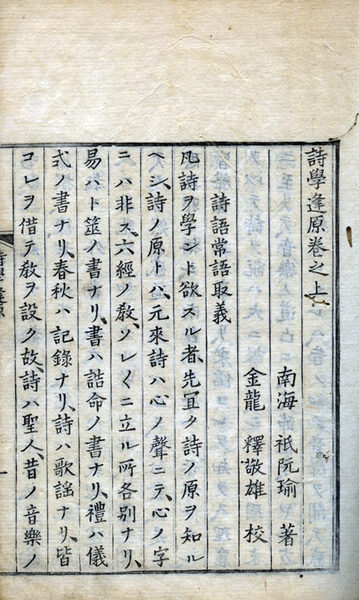 詩學逢原卷之上
南海 祇阮瑜 著
金龍 釋敬雄 校
詩語常語取義
凡詩ヲ學ント欲スル者先冝ク詩ノ原ヲ知ル
ヘシ詩ノ原トハ元來詩ハ心ノ聲ニテ心ノ字
ニハ非ス六經ノ敎ソレ〱ニ立ル所各別ナリ
易ハト筮ノ書ナリ書ハ誥命ノ書ナリ禮ハ儀
式ノ書ナリ春秋ハ記錄ナリ詩ハ歌謡ナリ皆
コレヲ借テ敎ヲ設ク故ニ詩ハ聖人昔ノ音樂ノ